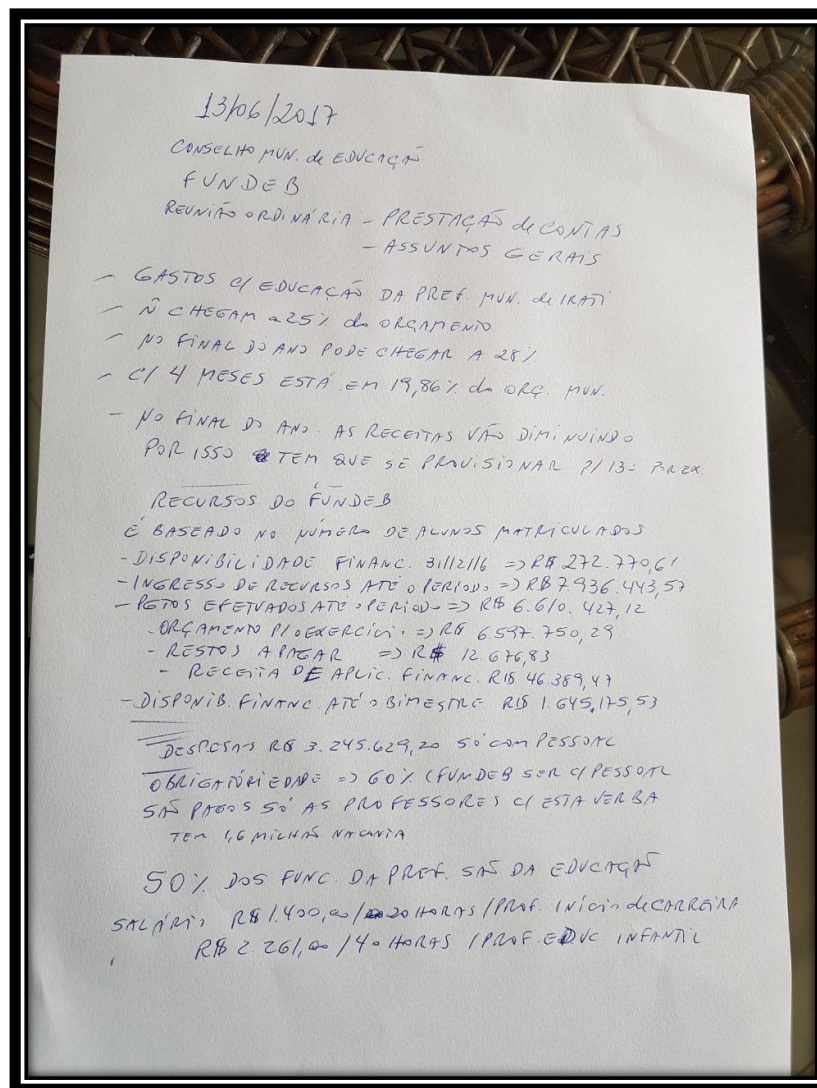 13/06/2017
CONSELHO MUN. de EDUCAÇÃO
FUNDEB
REUNIÃO ORDINÁRIA - PRESTAÇÃO de CONTAS
- ASSUNTOS GERAIS
- GASTOS C/ EDUCAÇÃO DA PREF. MUN. de IRATI
- Ñ CHEGAM a 25% do ORÇAMENTO
- NO FINAL DO ANO PODE CHEGAR A 28%
- C/ 4 MESES ESTÁ EM 19,86% do ORÇ. MUN.
- NO FINAL DO ANO AS RECEITAS VÃO DIMINUINDO
POR ISSO TEM QUE SE PROVISIONAR P/ 13º POR EX.
RECURSOS DO FUNDEB
É BASEADO NO NÚMERO DE ALUNOS MATRICULADOS
- DISPONIBILIDADE FINANC. 31/12/16 => R$ 272.770,61
- INGRESSO DE RECURSOS ATÉ O PERÍODO => R$ 7.936.443,57
- PGTOS EFETUADOS ATÉ o PERÍODO => R$ 6.610.427,12
- ORÇAMENTO P/ o EXERCÍCIO => R$ 6.597.750,29
- RESTOS A PAGAR => R$ 12.676,83
- RECEITA DE APLIC. FINANC. R$ 46.389,47
- DISPONIB. FINANC. ATÉ o BIMESTRE R$ 1.645.175,53
DESPESAS R$ 3.245.629,20 SÓ COM PESSOAL
OBRIGATÓRIEDADE => 60% (FUNDEB SER C/ PESSOAL
SÃO PAGOS SÓ AS PROFESSORES C/ ESTA VERBA
TEM 1,6 MILHÃO NA CONTA
50% DOS FUNC. DA PREF. SÃO DA EDUCAÇÃO
SALÁRIO R$ 1.400,00 / 20 HORAS / PROF. INÍCIO de CARREIRA
R$ 2.261,00 / 40 HORAS / PROF. EDUC. INFANTIL